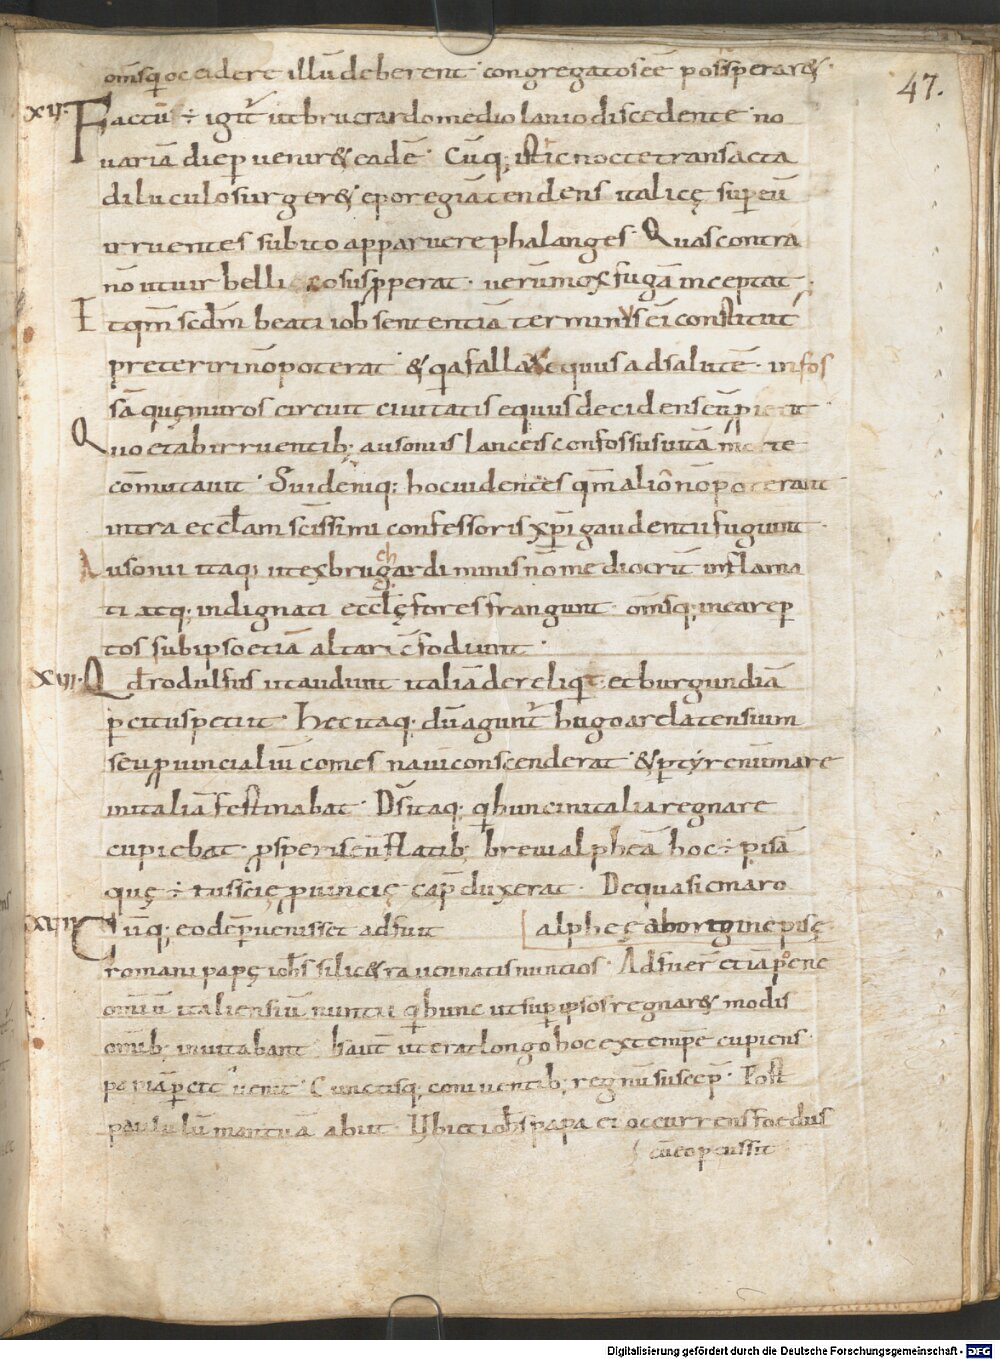 om̄sq; occidere illū deberent · congregatos eē possp̄erar& ·
47.
XII. Factū ÷ igit᷑ ut bruchardo mediolanio discedente · no
variā die p̱venir& eadē · Cūq; istic nocte transacta
diluculo surger& eporegiā tendens italicę sup̱ eū
irruentes subito apparuere phalanges · Quas contra
nō utuir belli cosus p̱perat · verūmox fugā inceptat ·
Et qm̄ scd̄m beati iob sententiā terminus ei constitut᷑
preteriri nō poterat · & q̱a fallax equus ad salutē · in fos
sā quę muros circuit civitatis equus decidens eū
Quo et ab irruentib; ausoniis lanceis confossus vitā morte
cōmutavit · Sui deniq; hoc videntes qm̄ aliō nō poterant
intra eccl̄am sc̄issimi confessoris xp̄i gaudentii fugiunt ·
ch
Ausonii itaq; utex brugardi minis nō mediocrit̄ inflāma
ti atq; indignati eccl̄ę fores frangunt · om̄sq; in ea rep̱
tos sub ipso etiā altari cōfodiunt ·
XIII. Qd̄ rodulfus ut audiunt italiā dereliq̱t · et burgundiā
p̱citus petiit · Hec itaq; dū agunt᷑ hugo arelatensium
seu p̱vincialiū comes navī conscenderat · & p̱ tyrenūmare
in italiā festinabat · Ds̄ itaq; q̱ hunc in italia regnare
cupiebat · p̱speris eū flatib; brevi alpheā hoc ÷ pisā
quę ÷ tusscię p̱vincię cap̄ duxerat · De qua sic maro
XIIII Cūq; eo dep̱venisset adfuit
alpheę ab origine pisę ·
romani papę ioh̄s silic& ravennatis nuntios · Adfuer̄ etiā pene
omniū italiensiū nuntii q̱ hunc ut sup̱ ipsos regnar& modis
omīb; invitabant · haut̄ ut erat longo hoc ex tempe cupiens ·
papiā p̱cit᷑ venit · Cunctisq; coniventib; regnū suscep̄ · Post
paululū mantuā abiit · Ubi et ioh̄s papa ei occurrens foedus
cū eo p̱cussit
Digitalisierung gefördert durch die Deutsche Forschungsgemeinschaft - DFG